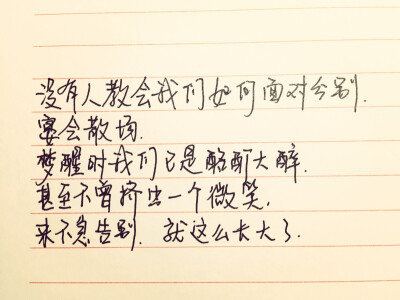 没有人教会我们如何面对分别.
宴会散场.
梦醒时我们已是酩酊大醉.
甚至不曾挤出一个微笑.
来不急告别. 就这么长大了.